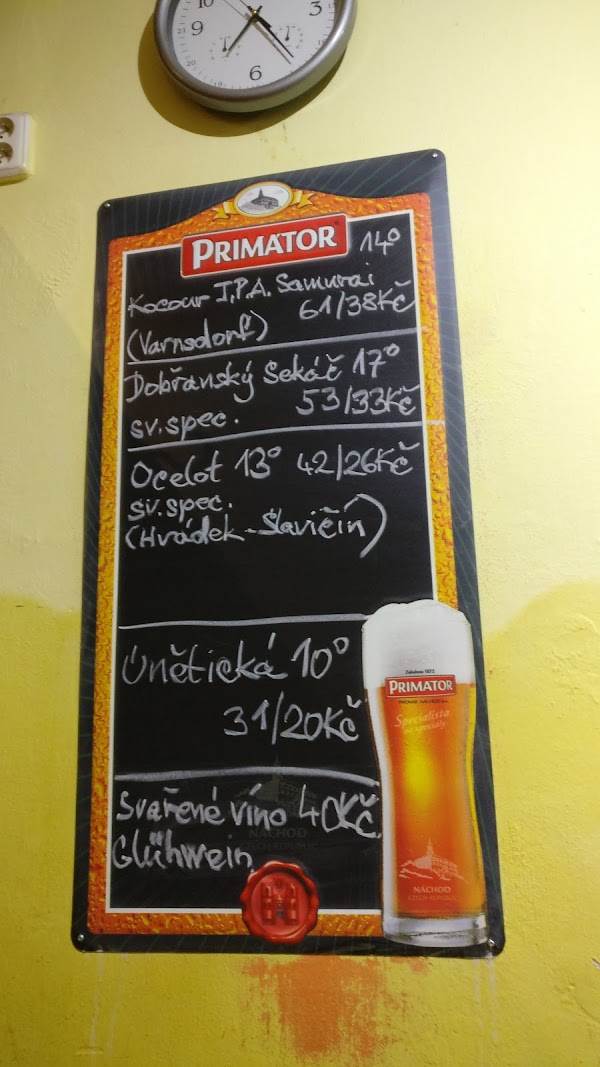 10
3
9
6
PRIMÁTOR
14°
Kocour I.P.A. Samurai
61/38Kč
(Varnsdorf)
Dobřanský Sekáč 17°
53/33Kč
sv.spec.
Ocelot 13° 42/26Kč
sv.spec.
(Hrádek-Slavičín)
Únětická 10°
31/20Kč
Svařené víno 40Kč
Glühwein
NÁCHOD
CZECH REPUBLIC
PRIMATOR
Specialista
na speciály
NÁCHOD
CZECH REPUBLIC